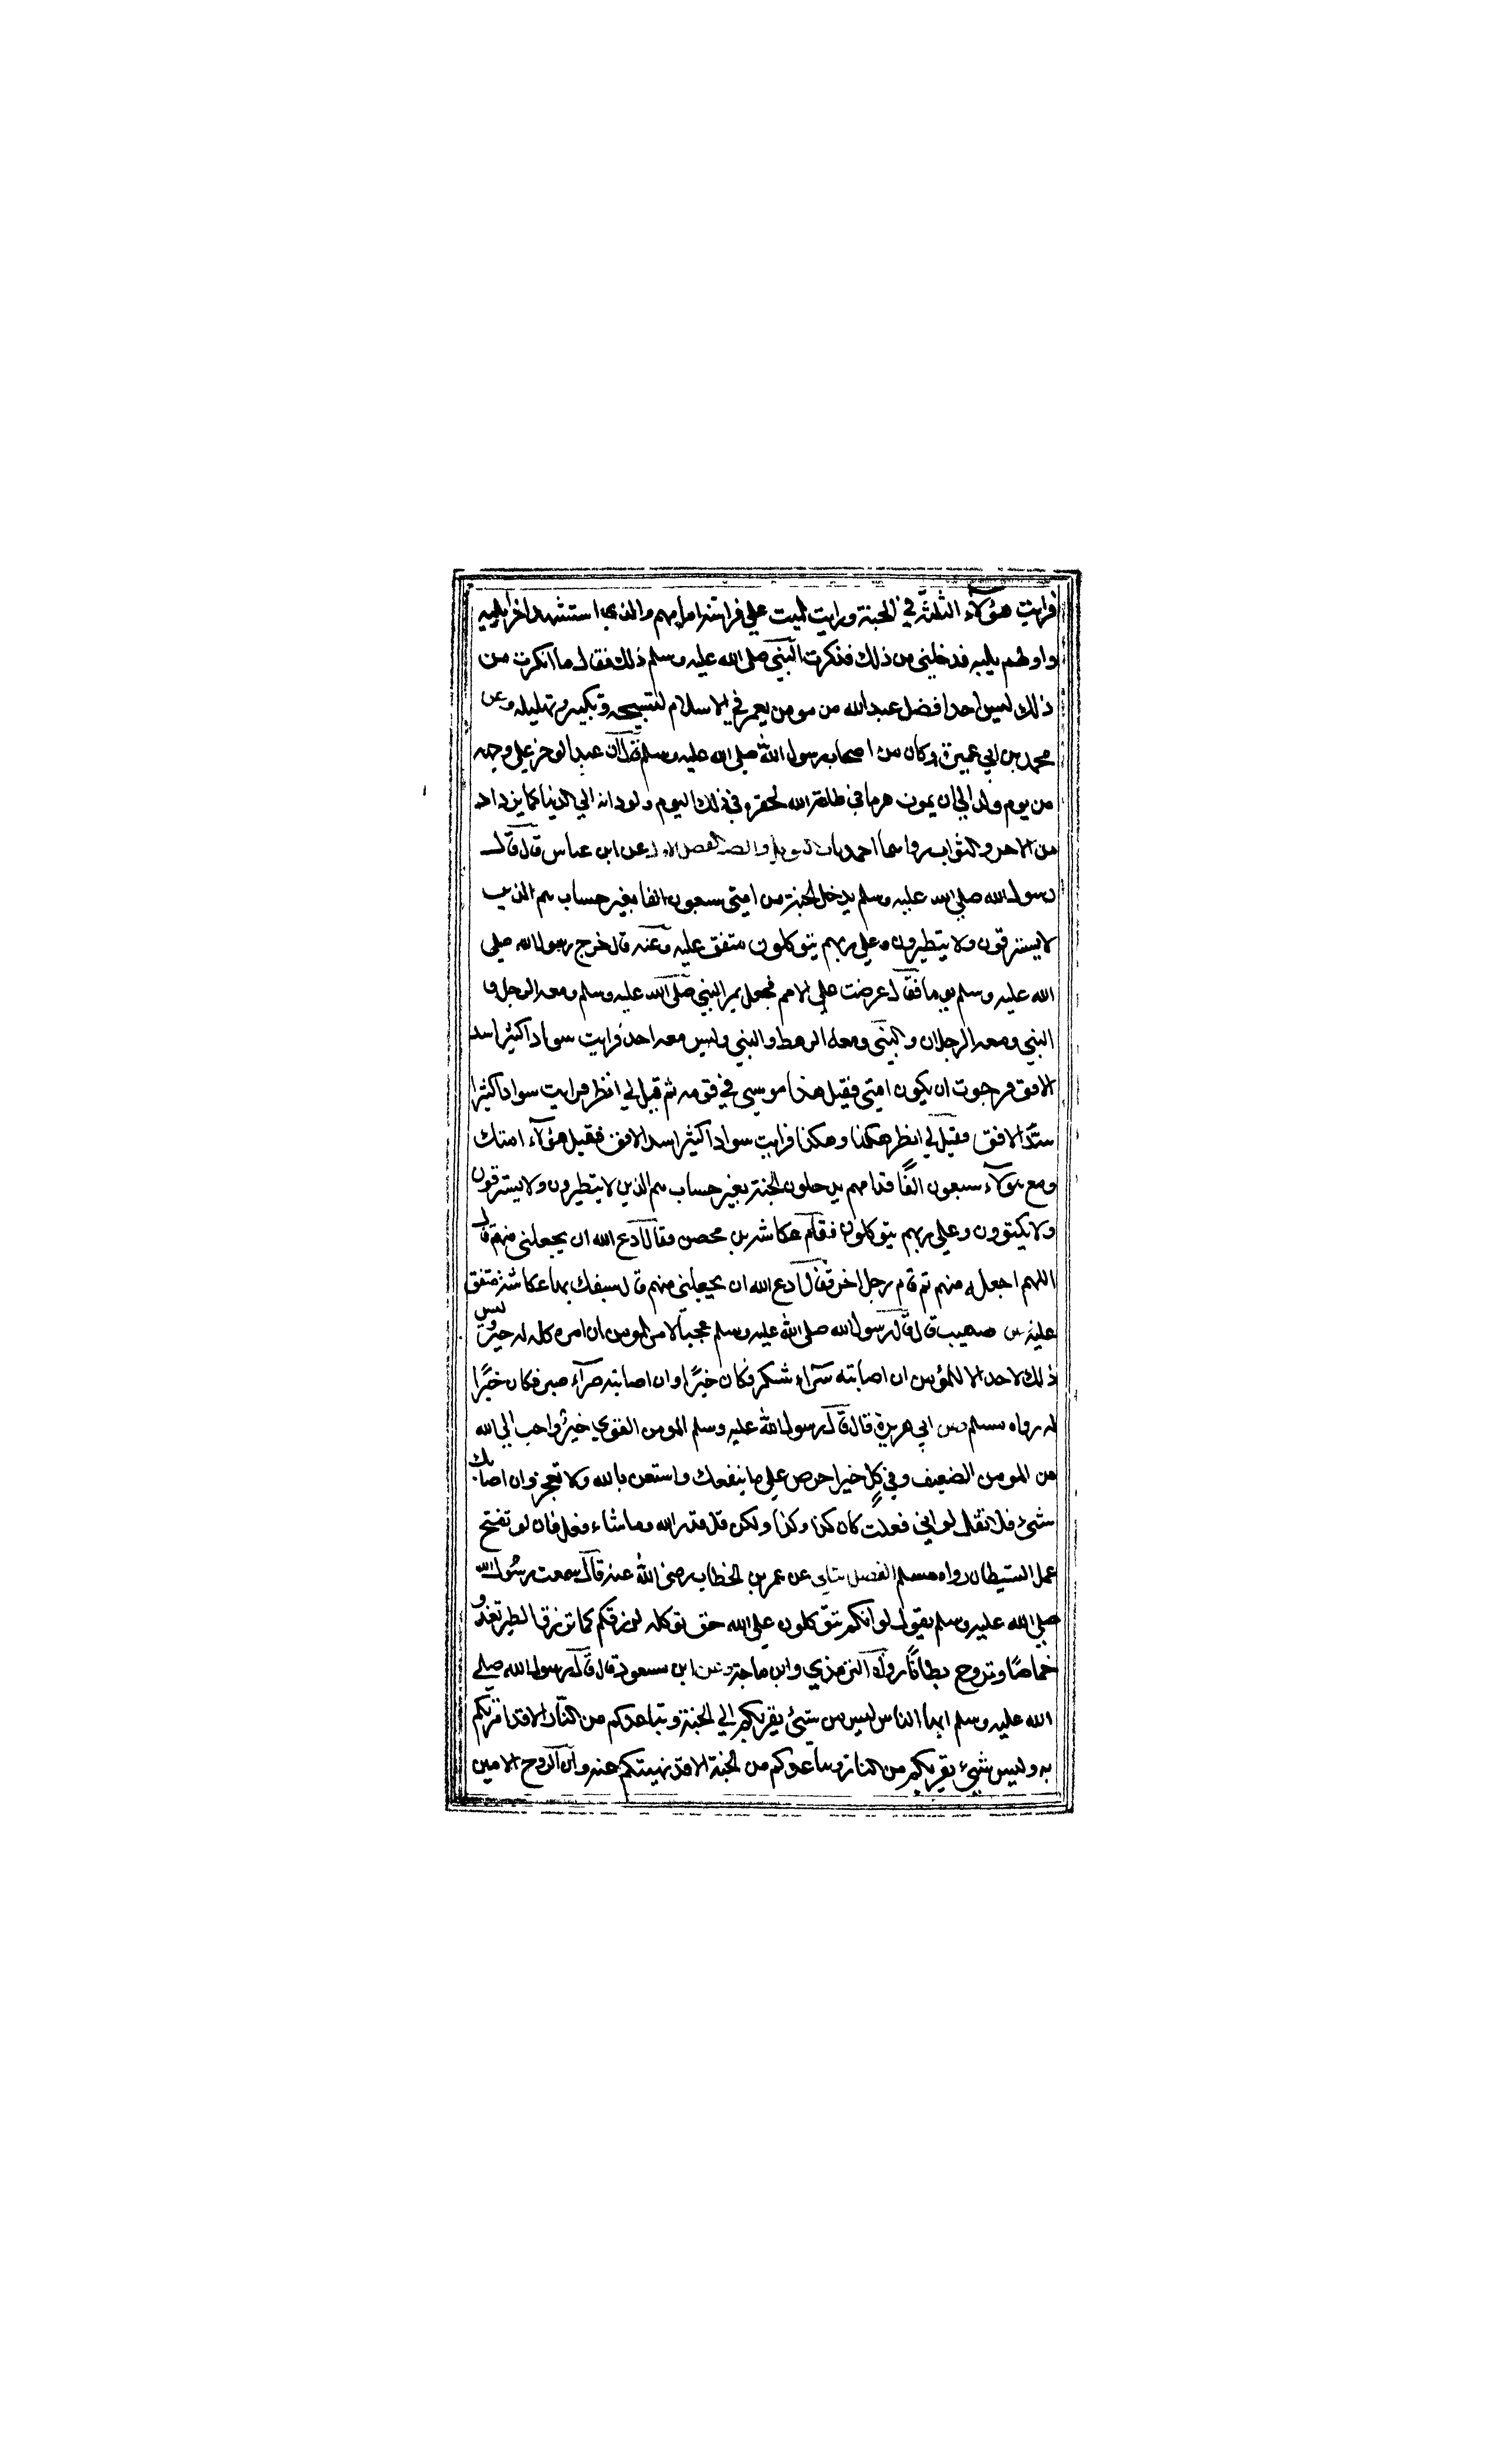 فرايت هؤلاء الثلثة في الجنة ورايت الميت علي فراشه امامهم والذي استشهد اخرا يليه
واولهم يليه فدخلني من ذلك فذكرت النبي صلي الله عليه وسلم ذلك فقال ما انكرت من
ذلك ليس احد افضل عبد الله من مومن يعمر في الاسلام لتسبيحه وتكبيره وتهليله وعن
محمد بن ابي عميرة وكان من اصحاب رسول الله صلي الله عليه وسلم قال ان عبدا لو خر علي وجهه
من يوم ولد الي ان يموت هرما في طاعة الله لحقره في ذلك اليوم ولود انه الي الدنيا كما يزداد
من الاجر والثواب رواهما احمد باب التوكل والصبر الفصل الاول عن ابن عباس قال قال
رسول الله صلي الله عليه وسلم يدخل الجنة من امتي سبعون الفا بغير حساب هم الذين
لا يسترقون ولا يتطيرون وعلي ربهم يتوكلون متفق عليه وعنه قال خرج رسول الله صلي
الله عليه وسلم يوما فقال عرضت علي الامم فجعل يمر النبي صلي الله عليه وسلم ومعه الرجل و
النبي ومعه الرجلان والنبي ومعه الرهط والنبي وليس معه احد فرايت سوادا كثيرا سد
الافق فرجوت ان يكون امتي فقيل هذا موسي في قومه ثم قيل لي انظر فرايت سوادا كثيرا
سدّ الافق فقيل لي انظر هكذا وهكذا فرايت سوادا كثيرا سد الافق فقيل هؤلاء امتك
ومع هؤلاء سبعون الفًا قدامهم يدخلون الجنة بغير حساب هم الذين لا يتطيرون ولا يسترقون
ولا يكتوون وعلي ربهم يتوكلون فقام عكاشة بن محصن فقال ادع الله ان يجعلني منهم قال
اللهم اجعله منهم ثم قام رجل اخر فقال ادع الله ان يجعلني منهم قال سبقك بها عكاشة متفق
عليه عن صهيب قال قال رسول الله صلي الله عليه وسلم عجبا لامر المومن ان امره كله له خير وليس
ذلك لاحد الا للمؤمن ان اصابته سرّاء شكر فكان خيرًا وان اصابته ضرآء صبر فكان خيرًا
له رواه مسلم وعن ابي هريرة قال قال رسول الله عليه وسلم المومن القوي خير واحب الي الله
من المومن الضعيف وفي كلٍ خير احرص علي ما ينفعك واستعن بالله ولا تعجز وان اصابك
شيء فلا تقل لو اني فعلت كان كذا وكذا ولكن قل قدر الله وما شاء فعل فان لو تفتح
عمل الشيطان رواه مسلم الفصل الثاني عن عمر بن الخطاب رضي الله عنه قال سمعت رسول الله
صلي الله عليه وسلم يقول لو انكم تتوكلون علي الله حق توكله لرزقكم كما ترزق الطير تغدو
خماصًا وتروح بطانًا رواه الترمذي وابن ماجة وعن ابن مسعود قال قال رسول الله صلے
الله عليه وسلم ايها الناس ليس من شيئ يقربكم الي الجنة ويباعدكم من النار الا قد امرتكم
به وليس شيئ يقربكم من النار ويباعدكم من الجنة الا قد نهيتكم عنه وان الروح الامين